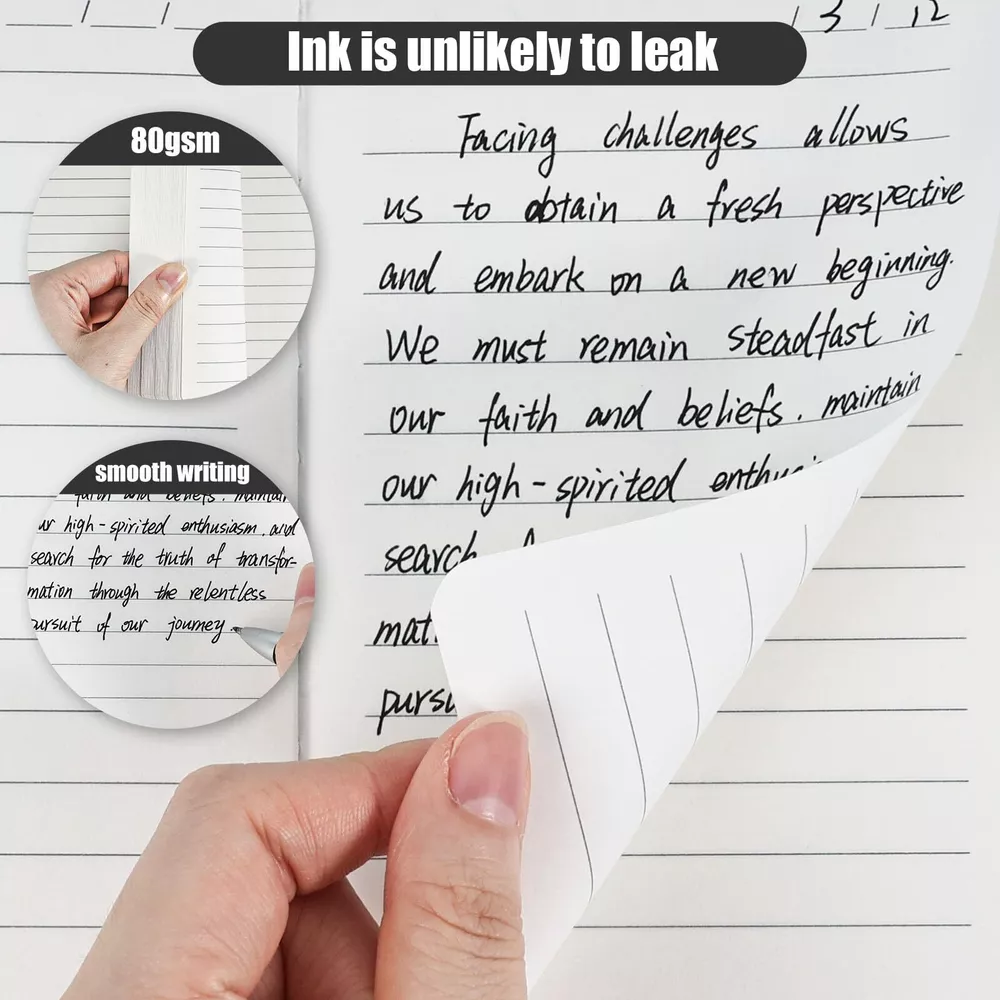 Ink is unlikely to leak
/ 3 / 12
80gsm
Facing challenges allows
us to obtain a fresh perspective
and embark on a new beginning.
We must remain steadfast in
our faith and beliefs. maintain
our high-spirited
search
smooth writing
faith and beliefs. maintain
high-spirited enthusiasm. and
search for the truth of transfor-
mation through the relentless
pursuit of our journey.